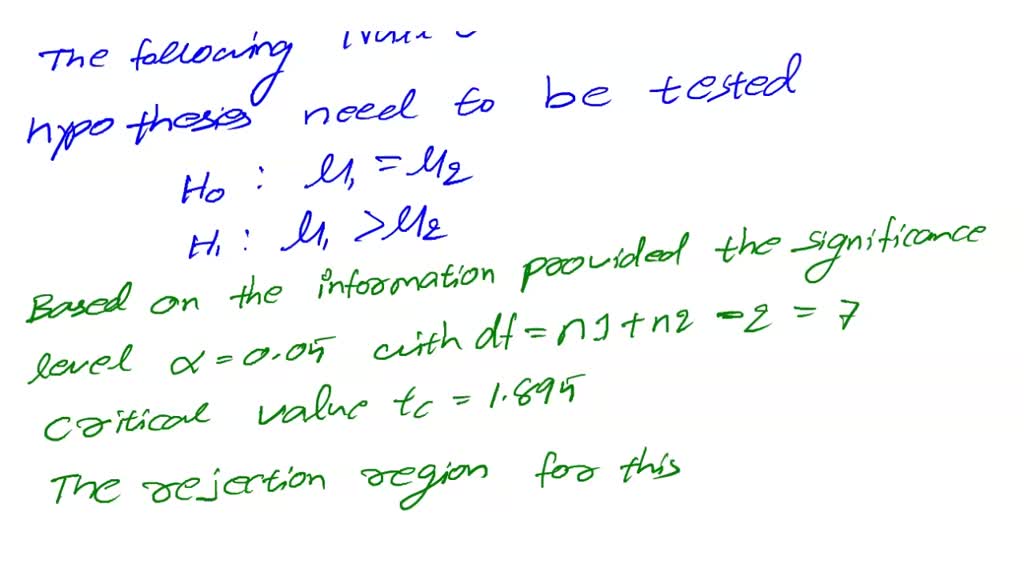 The following
hypotheses need to be tested
H₀ : μ₁ = μ₂
H₁ : μ₁ > μ₂
Based on the information provided the significance
level α = 0.05 with df = n1 + n2 - 2 = 7
critical value tc = 1.895
The rejection region for this